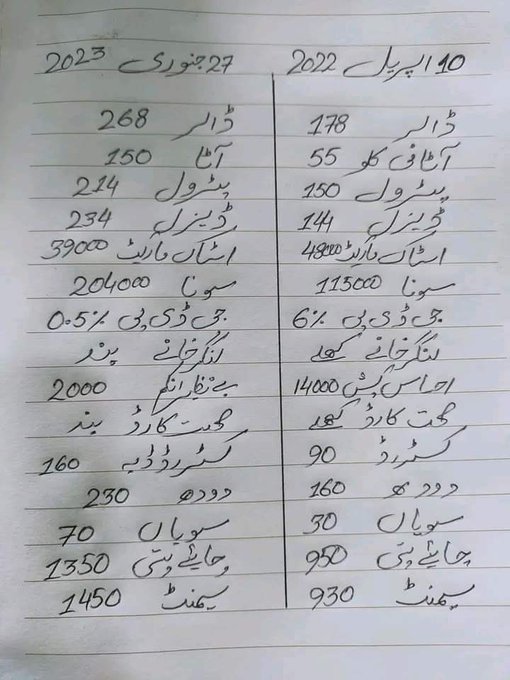 10 اپریل 2022
ڈالر 178
آٹا فی کلو 55
پیٹرول 150
ڈیزل 144
اسٹاک مارکیٹ 48000
سونا 115000
جی ڈی پی 6%
لنگر خانے کھلے
احساس کیش 14000
صحت کارڈ کھلے
کسٹرڈ 90
دودھ 160
سویاں 30
چائے پتی 950
سیمنٹ 930
27 جنوری 2023
ڈالر 268
آٹا 150
پیٹرول 214
ڈیزل 234
اسٹاک مارکیٹ 39000
سونا 204000
جی ڈی پی 0.5%
لنگر خانے بند
بے نظیر انکم 2000
صحت کارڈ بند
کسٹرڈ ڈبہ 160
دودھ 230
سویاں 70
چائے پتی 1350
سیمنٹ 1450